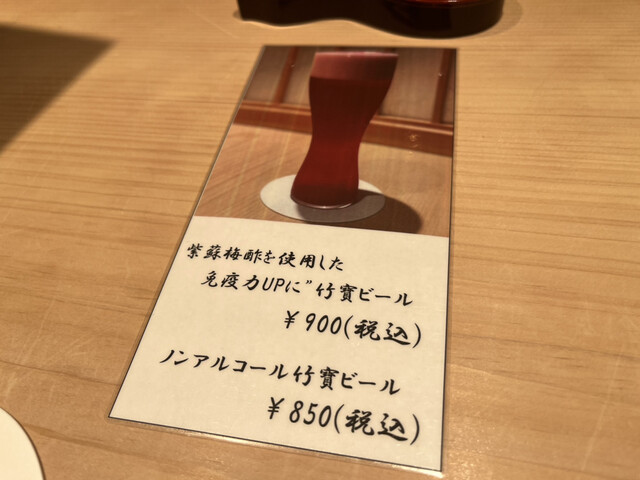 紫蘇梅酢を使用した
免疫力UPに"竹寳ビール
¥900(税込)
ノンアルコール竹寳ビール
¥850(税込)